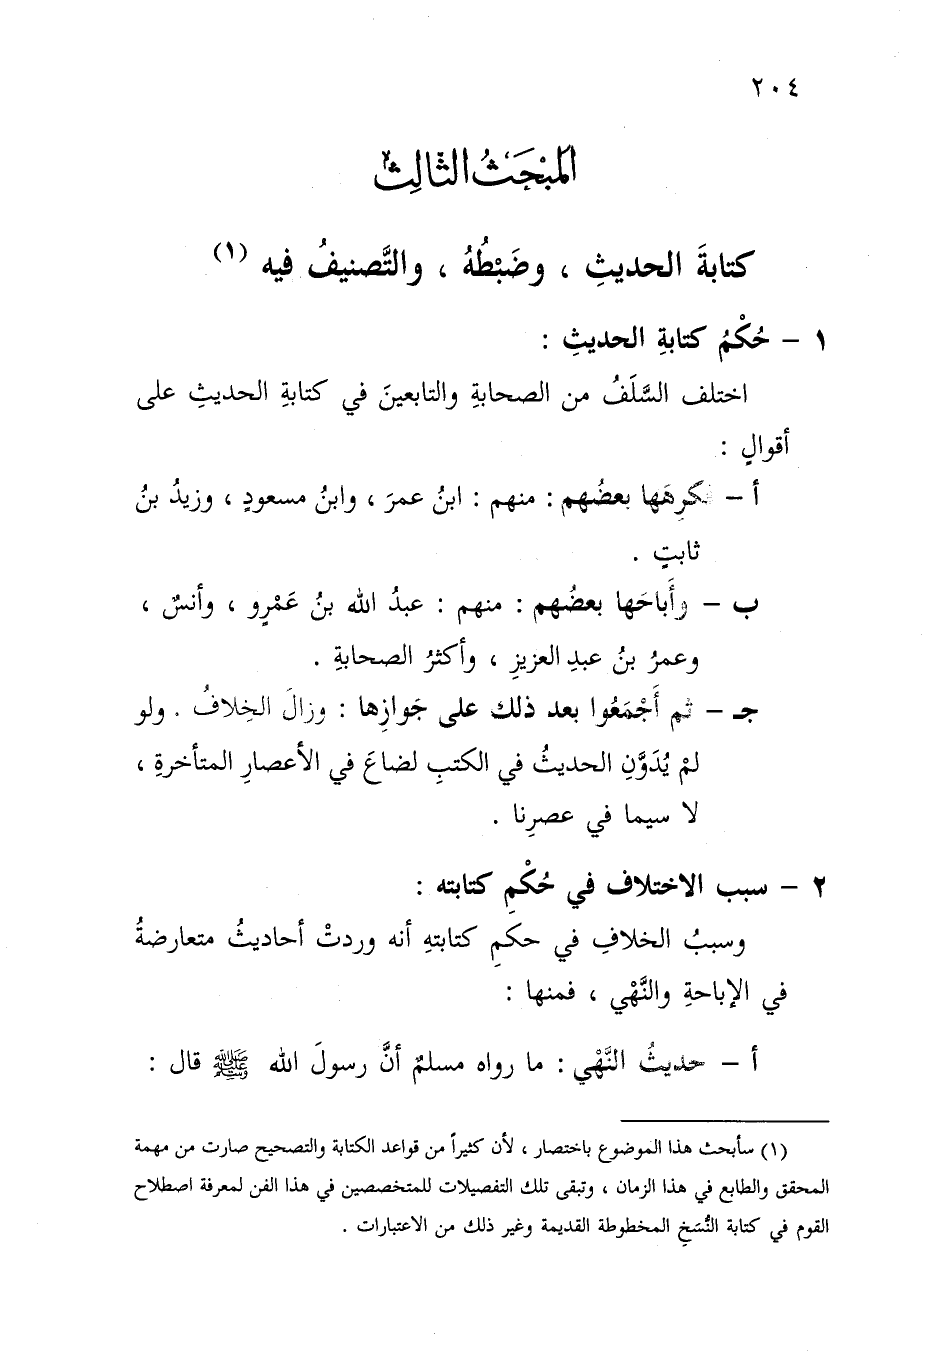 ٢٠٤
المَبْحَثُ الثَّالِثُ
كتابةَ الحديثِ ، وضَبْطُهُ ، والتَّصنيفُ فيه (١)
١ – حُكْمُ كتابةِ الحديثِ :
اختلف السَّلَفُ من الصحابةِ والتابعينَ في كتابةِ الحديثِ على
أقوالٍ :
أ – فكرِهَها بعضُهم : منهم : ابنُ عمرَ ، وابنُ مسعودٍ ، وزيدُ بنُ
ثابتٍ .
ب – وأَباحَها بعضُهم : منهم : عبدُ الله بنُ عَمْرٍو ، وأنسٌ ،
وعمرُ بنُ عبدِ العزيزِ ، وأكثرُ الصحابةِ .
جـ – ثم أَجْمَعُوا بعد ذلك على جَوازِها : وزالَ الخِلافُ . ولو
لمْ يُدَوَّنِ الحديثُ في الكتبِ لضاعَ في الأعصارِ المتأخرةِ ،
لا سيما في عصرِنا .
٢ – سبب الاختلاف في حُكْمِ كتابته :
وسببُ الخلافِ في حكمِ كتابتهِ أنه وردتْ أحاديثُ متعارضةُ
في الإباحةِ والنَّهْي ، فمنها :
أ – حديثُ النَّهْي : ما رواه مسلمٌ أنَّ رسولَ الله ﷺ قال :
(١) سأبحث هذا الموضوع باختصار ، لأن كثيراً من قواعد الكتابة والتصحيح صارت من مهمة
المحقق والطابع في هذا الزمان ، وتبقى تلك التفصيلات للمتخصصين في هذا الفن لمعرفة اصطلاح
القوم في كتابة النُّسَخِ المخطوطة القديمة وغير ذلك من الاعتبارات .